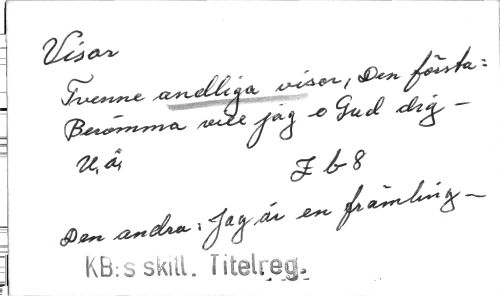 Visor
Tvenne andliga visor, Den första:
Berömma vill jag o Gud dig –
U, å,
Z b 8
Den andra: Jag är en främling –
KB:s skill. Titelreg.